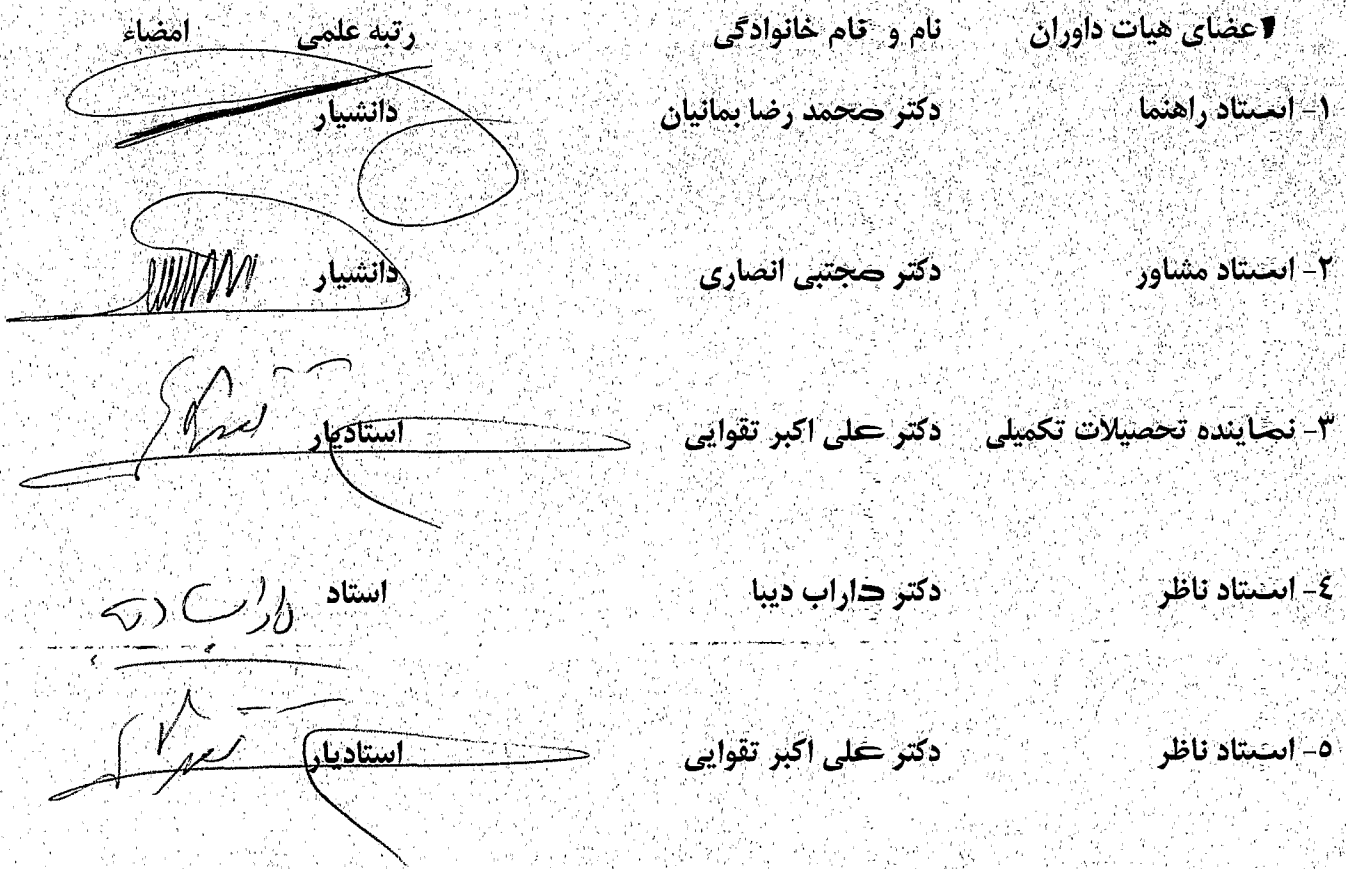 اعضای هیات داوران نام و نام خانوادگی رتبه علمی امضاء
۱- استاد راهنما دکتر محمد رضا بمانیان دانشیار
۲- استاد مشاور دکتر مجتبی انصاری دانشیار
۳- نماینده تحصیلات تکمیلی دکتر علی اکبر تقوایی استادیار
۴- استاد ناظر دکتر داراب دیبا استاد
۵- استاد ناظر دکتر علی اکبر تقوایی استادیار